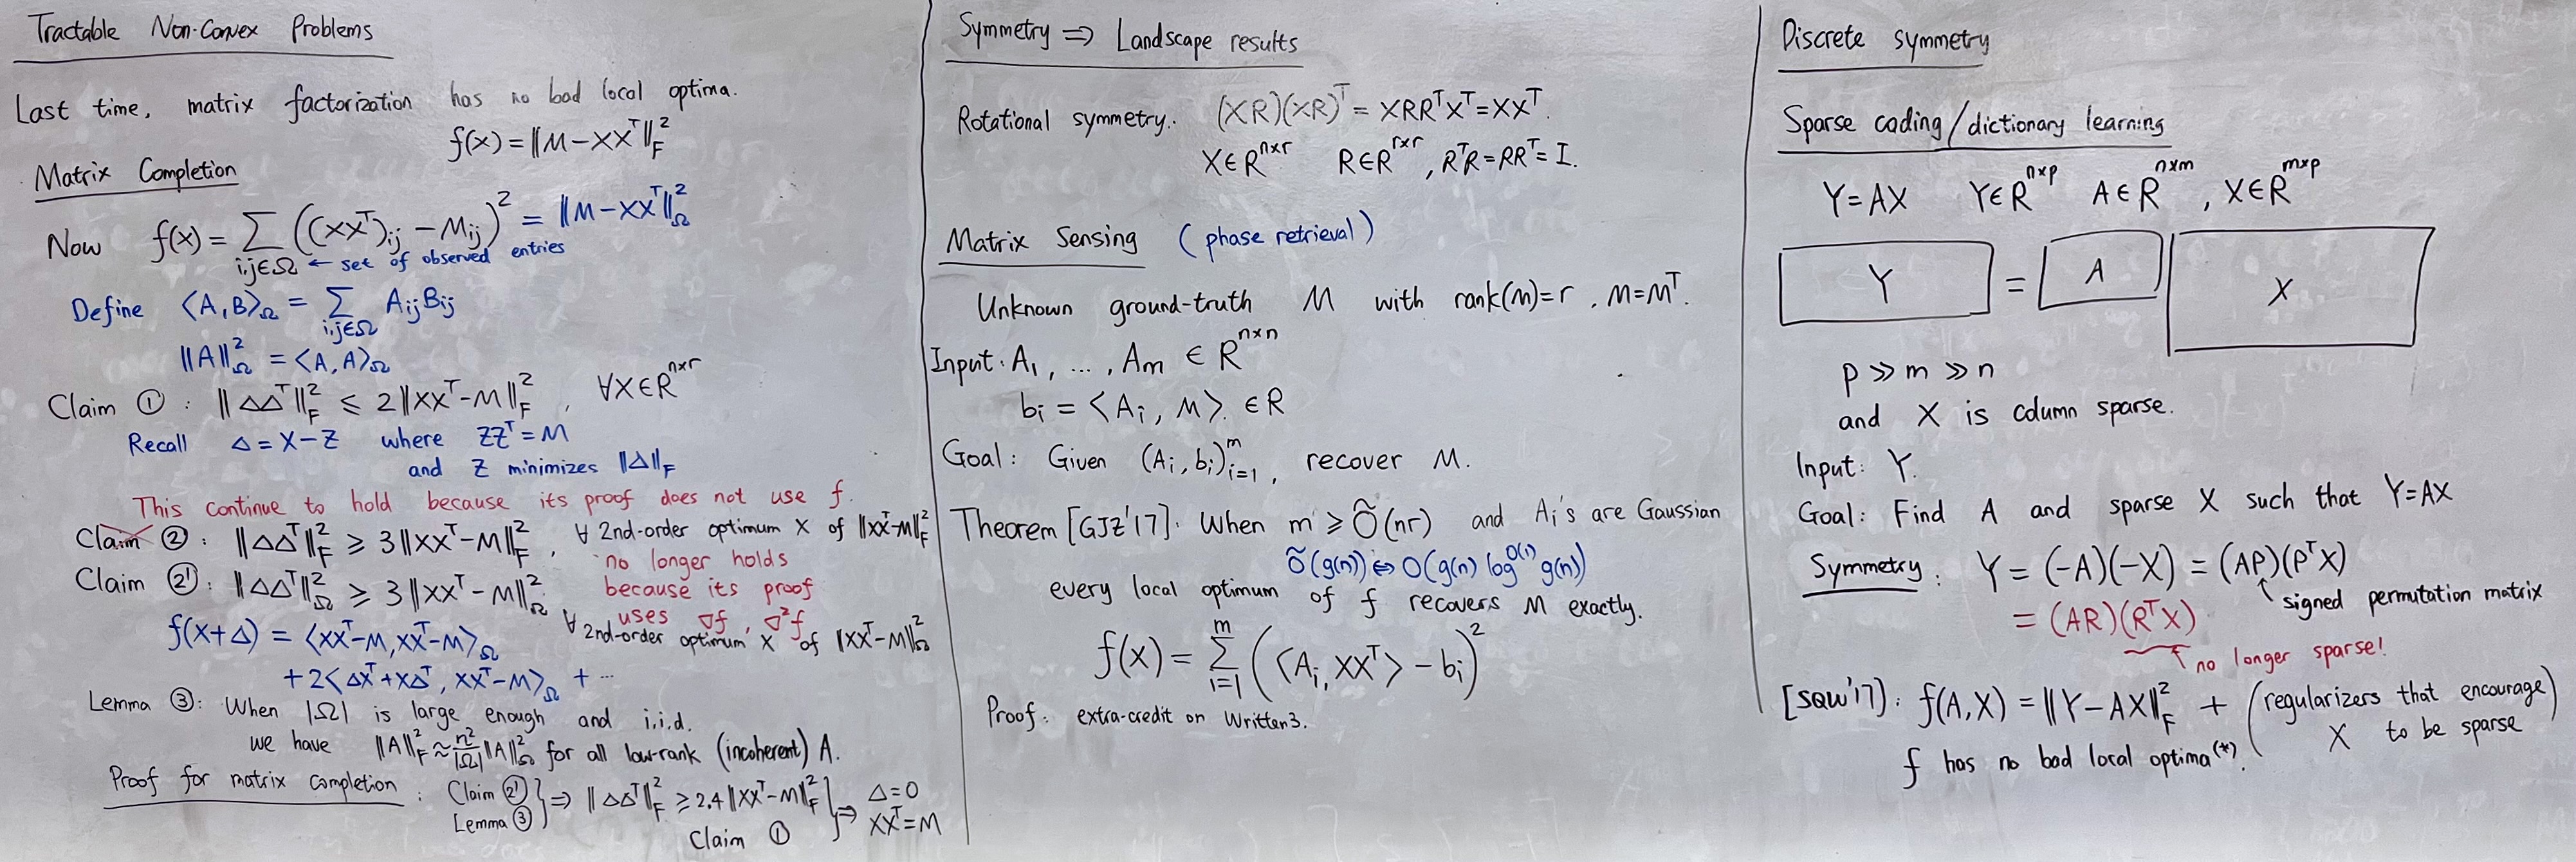 Tractable Non-Convex Problems
Last time, matrix factorization has no bad local optima.
f(x) = ‖M-XXᵀ‖²_F
Matrix Completion
Now f(x) = Σ_{i,j∈Ω} ((XXᵀ)ij - Mij)² = ‖M-XXᵀ‖²_Ω
← set of observed entries
Define ⟨A,B⟩_Ω = Σ_{i,j∈Ω} Aij Bij
‖A‖²_Ω = ⟨A,A⟩_Ω
Claim ① : ‖ΔΔᵀ‖²_F ≤ 2‖XXᵀ-M‖²_F, ∀X∈R^{n×r}
Recall Δ = X-Z where ZZᵀ=M
and Z minimizes ‖Δ‖_F
This continue to hold because its proof does not use f.
Claim ② : ‖ΔΔᵀ‖²_F ≥ 3‖XXᵀ-M‖²_F, ∀ 2nd-order optimum X of ‖XXᵀ-M‖²_F
no longer holds
because its proof
uses ∇f, ∇²f
Claim ②' : ‖ΔΔᵀ‖²_Ω ≥ 3‖XXᵀ-M‖²_Ω
∀ 2nd-order optimum X of ‖XXᵀ-M‖²_Ω
f(X+Δ) = ⟨XXᵀ-M, XXᵀ-M⟩_Ω
+2⟨ΔXᵀ+XΔᵀ, XXᵀ-M⟩_Ω + ...
Lemma ③: When |Ω| is large enough and i.i.d.
we have ‖A‖²_F ≈ n²/|Ω| ‖A‖²_Ω for all low-rank (incoherent) A.
Proof for matrix completion : Claim ②'
Lemma ③ } ⇒ ‖ΔΔᵀ‖²_F ≥ 2.4‖XXᵀ-M‖²_F
Claim ① } ⇒ Δ=0
XXᵀ=M
Symmetry ⇒ Landscape results
Rotational symmetry: (XR)(XR)ᵀ = XRRᵀXᵀ = XXᵀ.
X∈R^{n×r} R∈R^{r×r}, RᵀR=RRᵀ=I.
Matrix Sensing (phase retrieval)
Unknown ground-truth M with rank(M)=r, M=Mᵀ.
Input: A₁, ..., Am ∈ R^{n×n}
bi = ⟨Ai, M⟩. ∈R
Goal: Given (Ai, bi)_{i=1}^m, recover M.
Theorem [GJZ'17]. When m ≥ Õ(nr) and Ai's are Gaussian
Õ(g(n)) ⇔ O(g(n) log^{O(1)} g(n))
every local optimum of f recovers M exactly.
f(x) = Σ_{i=1}^m (⟨Ai, XXᵀ⟩ - bi)²
Proof: extra-credit on Written3.
Discrete symmetry
Sparse coding/dictionary learning
Y=AX Y∈R^{n×p} A∈R^{n×m}, X∈R^{m×p}
Y = A X
p ≫ m ≫ n
and X is column sparse.
Input: Y.
Goal: Find A and sparse X such that Y=AX
Symmetry: Y = (-A)(-X) = (AP)(PᵀX)
signed permutation matrix
= (AR)(RᵀX)
no longer sparse!
[SQW'17]. f(A,X) = ‖Y-AX‖²_F + (regularizers that encourage
X to be sparse)
f has no bad local optima(*).